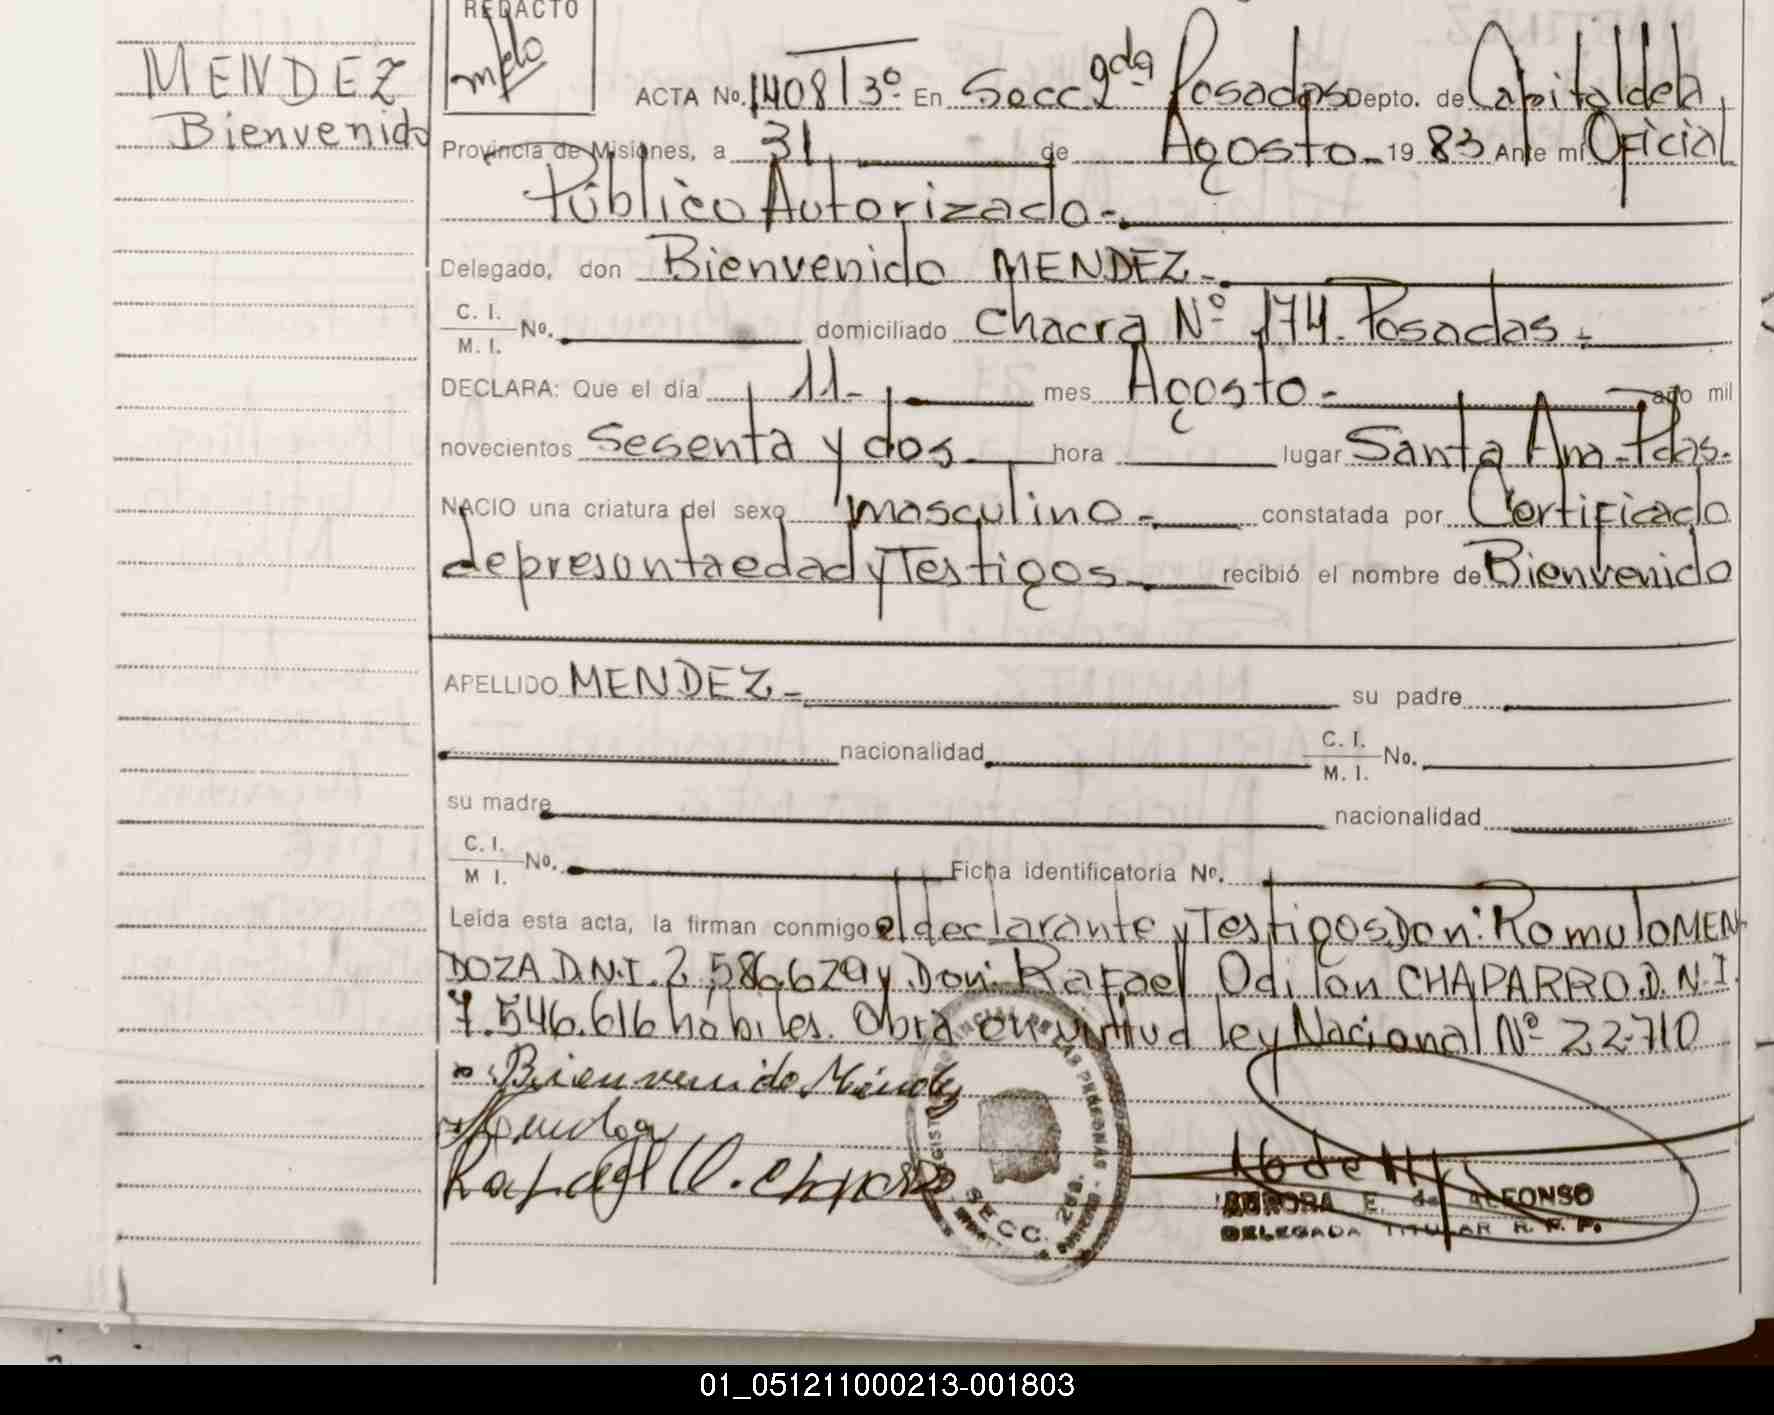 REDACTO
Melo
MENDEZ
Bienvenido
ACTA No. 1408 T 3º En Secc. 2da Posadas Depto. de Capital de la
Provincia de Misiones, a 31 de Agosto - 19 83 Ante mi Oficial
Público Autorizado -
Delegado, don Bienvenido MENDEZ -
C. I. / M. I. No. domiciliado Chacra Nº 174. Posadas -
DECLARA: Que el día 11 - mes Agosto - año mil
novecientos Sesenta y dos hora lugar Santa Ana - Pdas -
NACIO una criatura del sexo masculino - constatada por Certificado
de presunta edad y Testigos recibió el nombre de Bienvenido
APELLIDO MENDEZ - su padre
nacionalidad C. I. / M. I. No.
su madre nacionalidad
C. I. / M I. No. Ficha identificatoria No.
Leída esta acta, la firman conmigo el declarante y Testigos Don: Romulo MEN
DOZA D.N.I. 2.586.629 y Don: Rafael Odilon CHAPARRO. D.N.I.
7.546.616 hábiles. Obra en virtud ley Nacional Nº 22.710
Bienvenido Méndez
Rafael O. Chaparro
PROVINCIAL DE LAS PERSONAS
SECC. 2da.
AURORA E. de ALFONSO
DELEGADA TITULAR R. P. P.
01_051211000213-001803